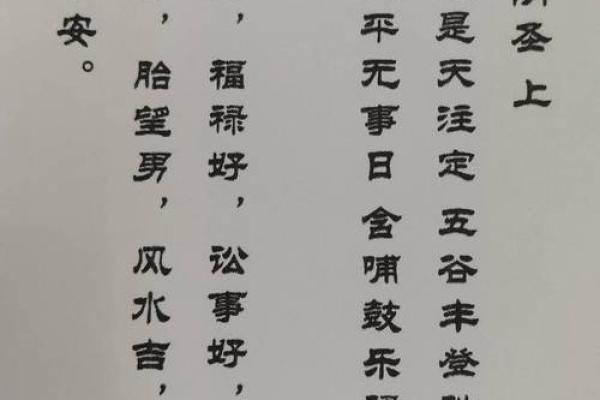 圣上
是天注定五谷丰登
平无事日含哺鼓乐
，福禄好，讼事好，
，胎望男，风水吉，
安。